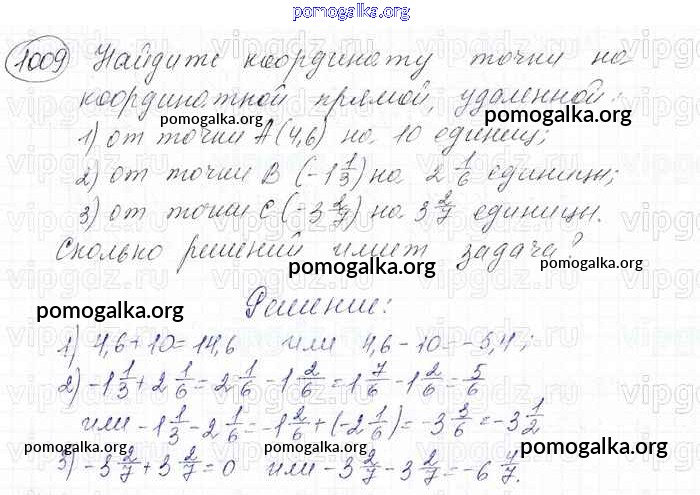 pomogalka.org
1009 Найдите координату точки на
координатной прямой, удаленной:
pomogalka.org
1) от точки A(4,6) на 10 единиц;
pomogalka.org
2) от точки B (-1 1/3) на 2 1/6 единицы;
3) от точки C (-3 2/7) на 3 2/7 единицы.
pomogalka.org
Сколько решений имеет задача?
pomogalka.org pomogalka.org
pomogalka.org
Решение:
1) 4,6+10=14,6 или 4,6-10=-5,4;
2) -1 1/3+2 1/6=2 1/6-1 2/6=1 7/6-1 2/6=5/6
или -1 1/3-2 1/6=-1 2/6+(-2 1/6)=-3 3/6=-3 1/2
pomogalka.org pomogalka.org
3) -3 2/7+3 2/7=0 или -3 2/7-3 2/7=-6 4/7.